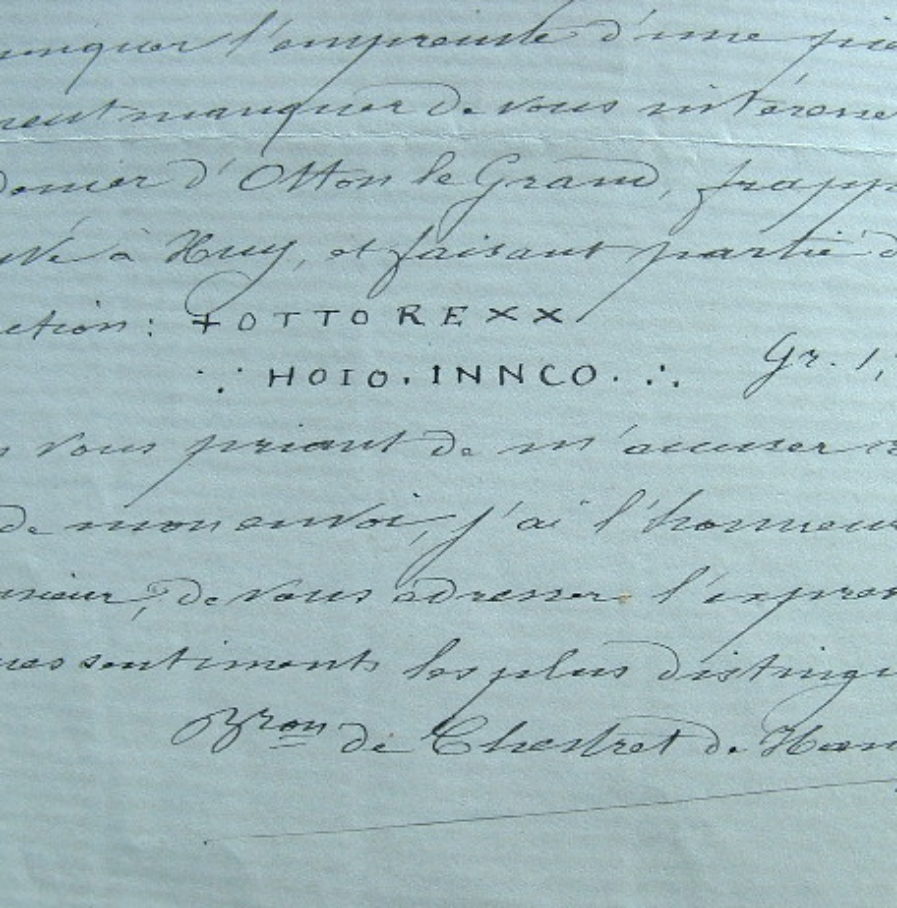 l'empreinte d'une piè
manquer de vous intéresse
denier d'Otton le Grand, frapp
à Huy, et faisant partie d
ction: + OTTO REXX
∵ HOIO. INNCO. ∴ Gr. 1,
vous priant de m'accuser r
de mon envoi, j'ai l'honneur
nsieur, de vous adresser l'expres
mes sentiments les plus distingu
Bron de Chestret de Han